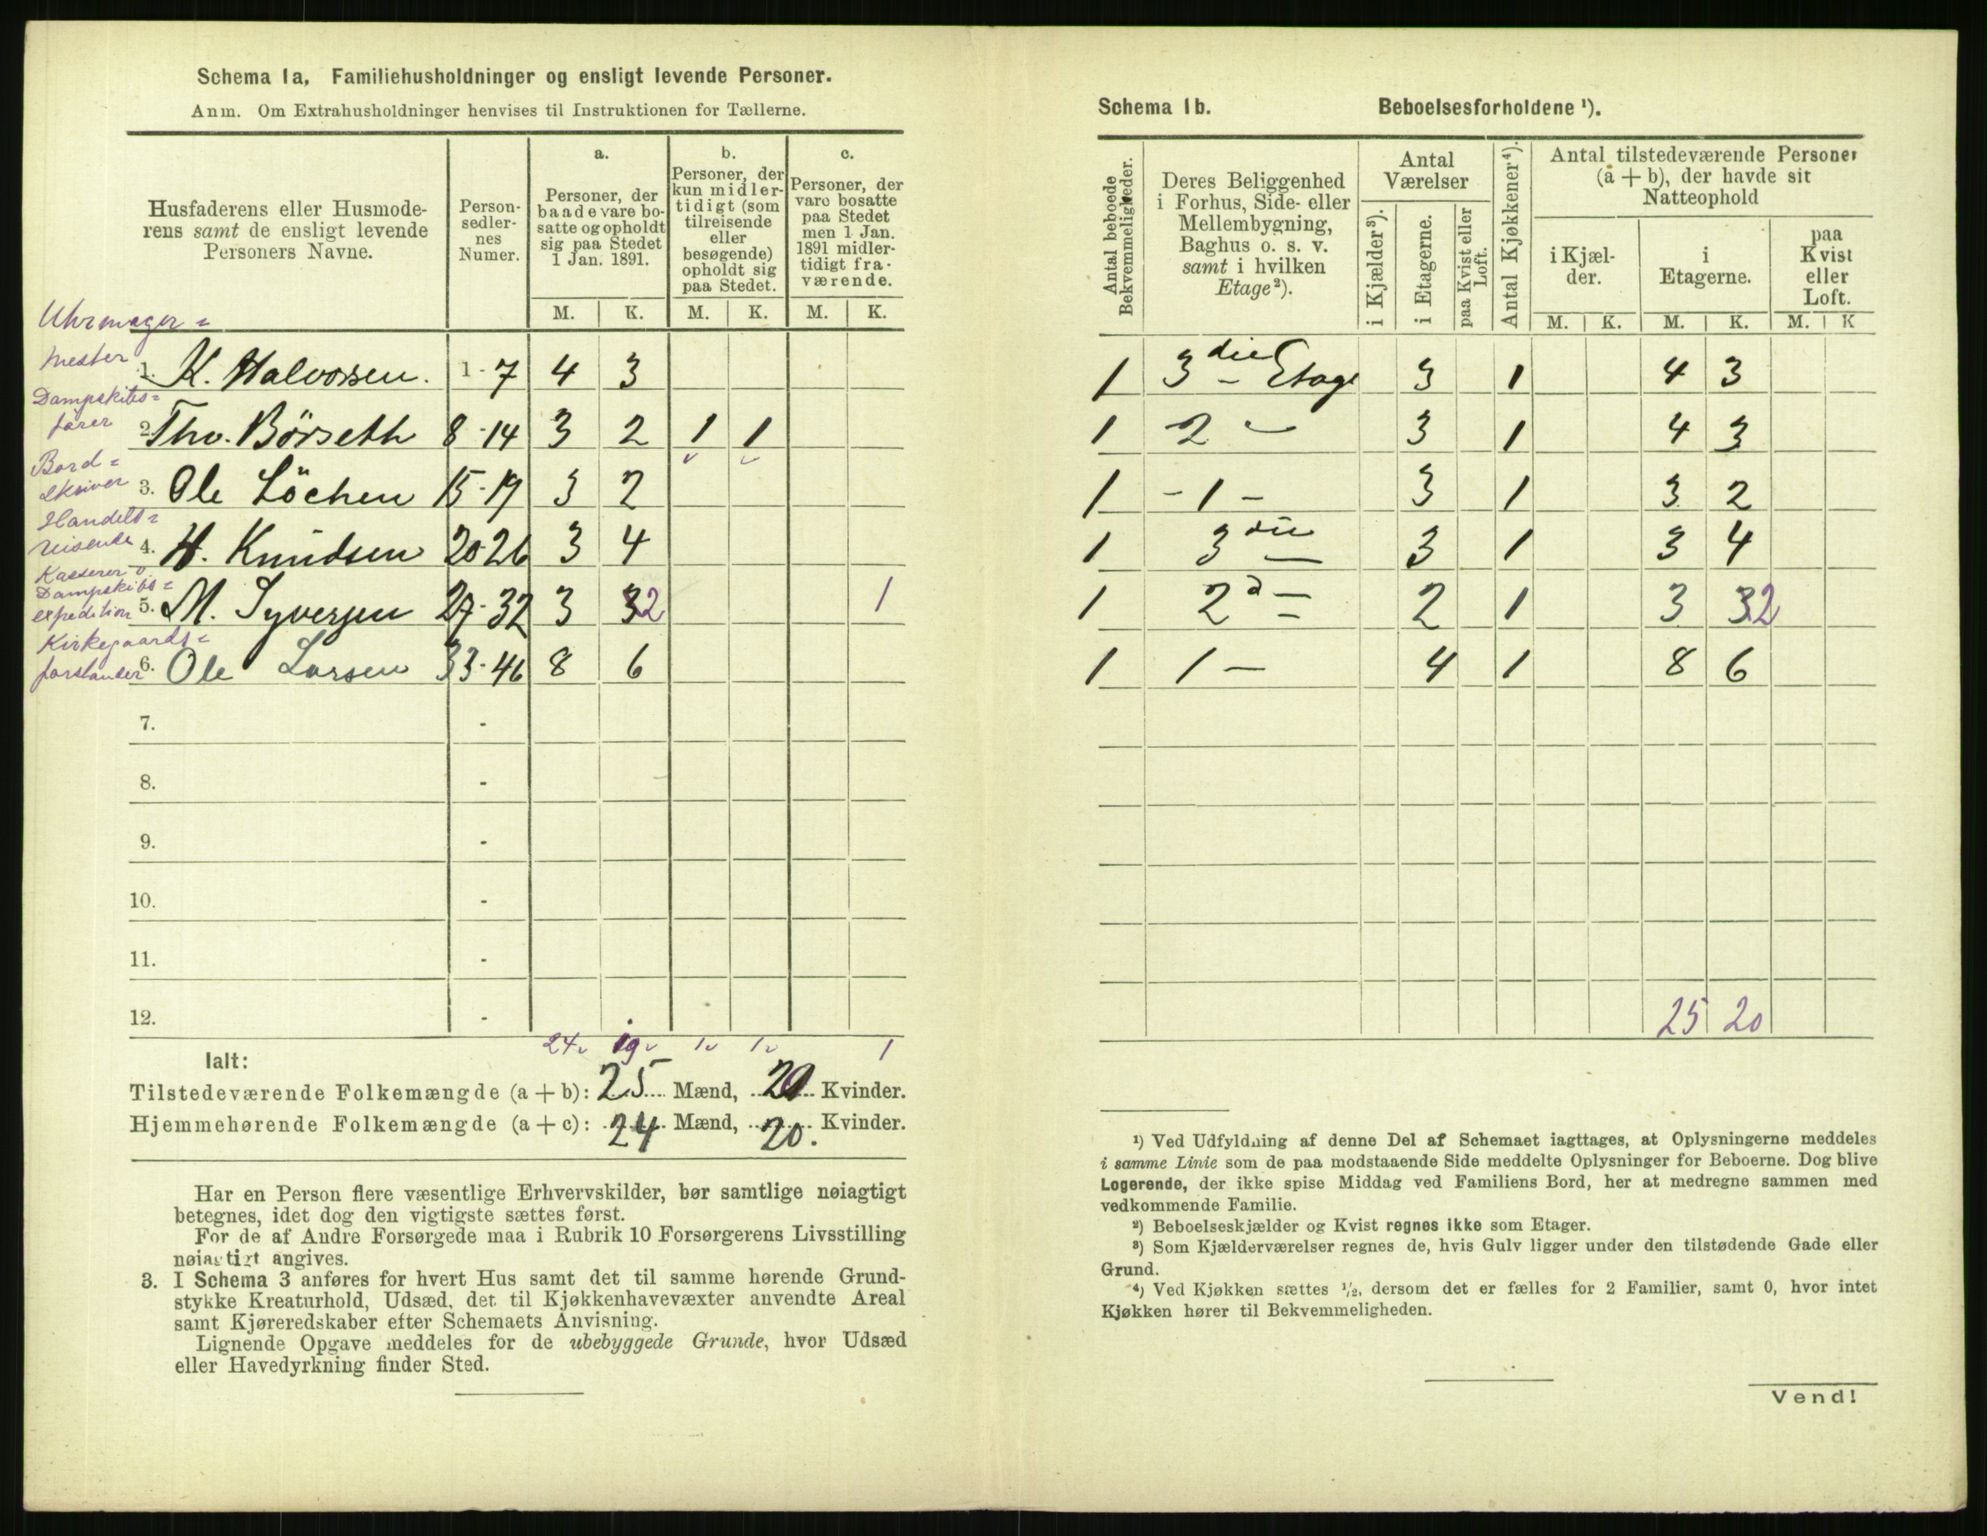 Schema 1a. Familiehusholdninger og ensligt levende Personer.
Anm. Om Extrahusholdninger henvises til Instruktionen for Tællerne.
Husfaderens eller Husmoderens samt de ensligt levende Personers Navne.
Person-sedlernes Numer.
a.
Personer, der baade vare bosatte og opholdt sig paa Stedet 1 Jan. 1891.
b.
Personer, der kun midlertidigt (som tilreisende eller besøgende) opholdt sig paa Stedet.
c.
Personer, der vare bosatte paa Stedet men 1 Jan. 1891 midlertidigt fraværende.
M. K. M. K. M. K.
Uhrmager=
mester 1. K. Halvorsen. 1-7 4 3
Dampskibs=
fører 2. Thv. Börseth 8-14 3 2 1 1
Bord=
skriver 3. Ole Löchen 15-19 3 2
Handels=
reisende 4. H. Knudsen 20-26 3 4
Kasserer v.
Dampskibs=
expedition 5. M. Syversen 27-32 3 32 1
Kirkegaards=
forstander 6. Ole Larsen 33-46 8 6
7. -
8. -
9. -
10. -
11. -
12. -
24 19 1 1 1
Ialt:
Tilstedeværende Folkemængde (a + b): 25 Mænd, 20 Kvinder.
Hjemmehørende Folkemængde (a + c): 24 Mænd, 20. Kvinder.
Har en Person flere væsentlige Erhvervskilder, bør samtlige nøiagtigt
betegnes, idet dog den vigtigste sættes først.
For de af Andre Forsørgede maa i Rubrik 10 Forsørgerens Livsstilling
nøiagtigt angives.
3. I Schema 3 anføres for hvert Hus samt det til samme hørende Grund-
stykke Kreaturhold, Udsæd, det til Kjøkkenhavevæxter anvendte Areal
samt Kjøreredskaber efter Schemaets Anvisning.
Lignende Opgave meddeles for de ubebyggede Grunde, hvor Udsæd
eller Havedyrkning finder Sted.
Schema 1b. Beboelsesforholdene ¹).
Antal beboede Bekvemmeligheder.
Deres Beliggenhed i Forhus, Side- eller Mellembygning, Baghus o. s. v. samt i hvilken Etage²).
Antal Værelser
i Kjælder³).
i Etagerne.
paa Kvist eller Loft.
Antal Kjøkkener⁴).
Antal tilstedeværende Personer (a + b), der havde sit Natteophold
i Kjælder.
i Etagerne.
paa Kvist eller Loft.
M. K. M. K. M. K
1 3die Etage 3 1 4 3
1 2 - 3 1 4 3
1 - 1 - 3 1 3 2
1 3die - 3 1 3 4
1 2d = 2 1 3 32
1 1 - 4 1 8 6
25 20
¹) Ved Udfyldning af denne Del af Schemaet iagttages, at Oplysningerne meddeles
i samme Linie som de paa modstaaende Side meddelte Oplysninger for Beboerne. Dog blive
Logerende, der ikke spise Middag ved Familiens Bord, her at medregne sammen med
vedkommende Familie.
²) Beboelseskjælder og Kvist regnes ikke som Etager.
³) Som Kjælderværelser regnes de, hvis Gulv ligger under den tilstødende Gade eller
Grund.
⁴) Ved Kjøkken sættes ½, dersom det er fælles for 2 Familier, samt 0, hvor intet
Kjøkken hører til Bekvemmeligheden.
Vend!